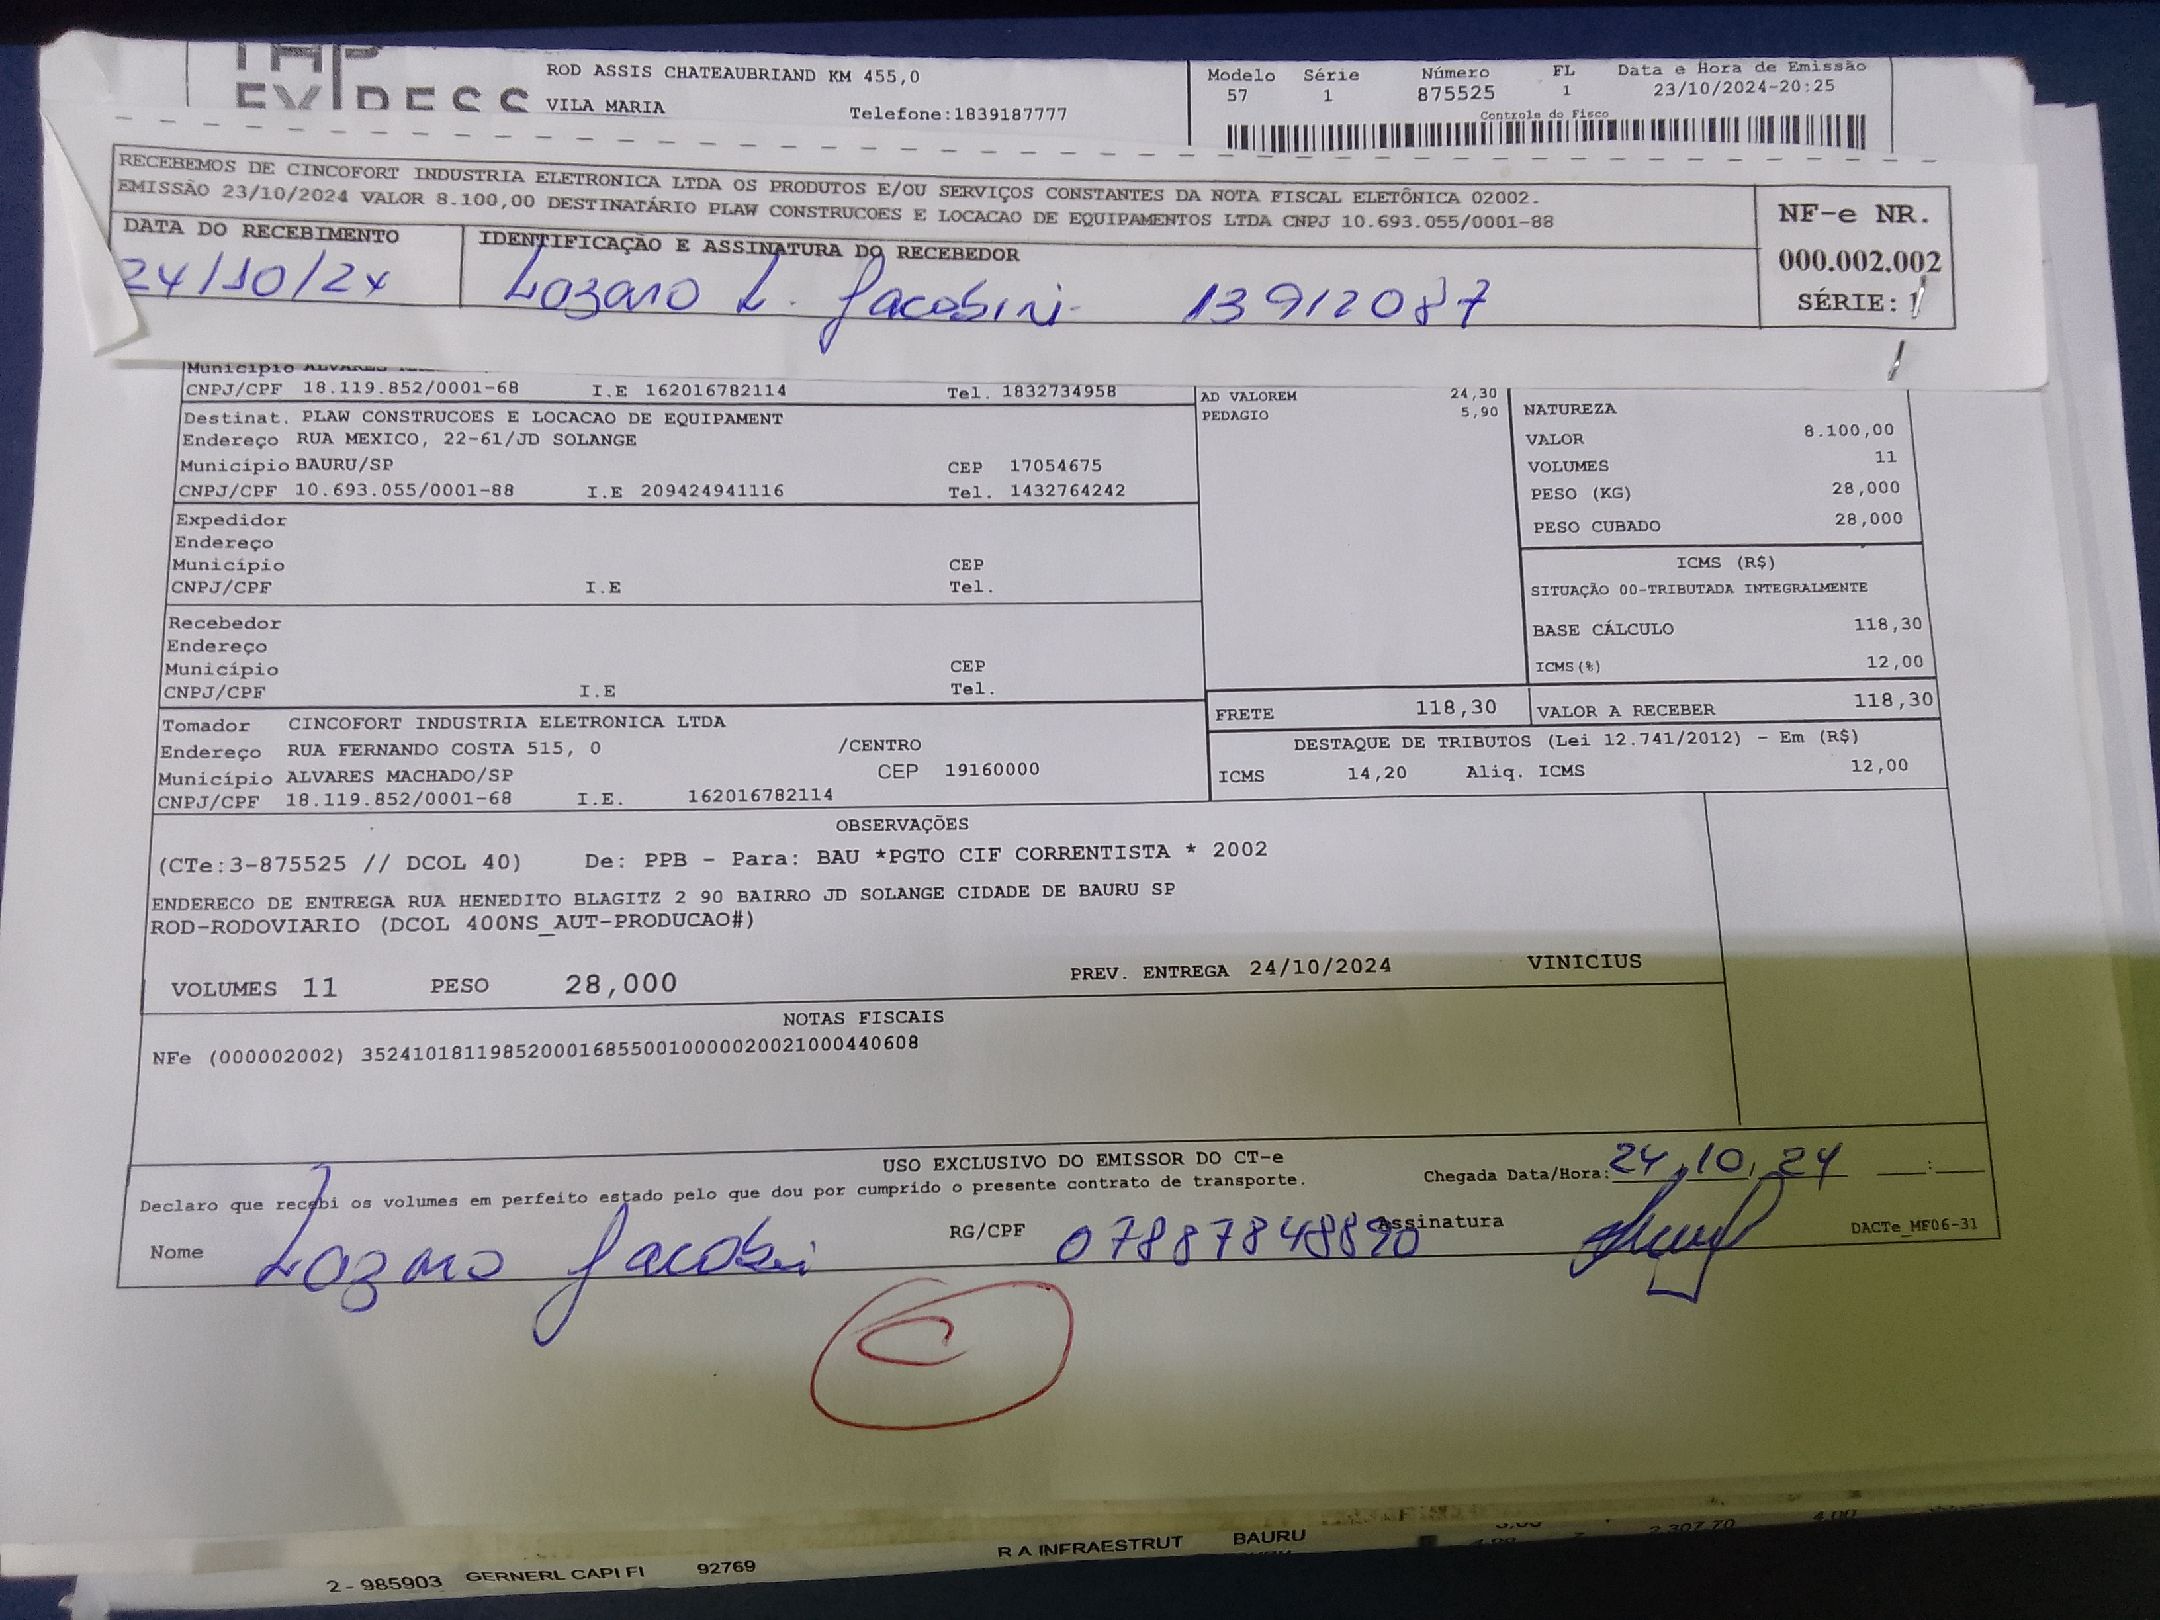 TAP
EXPRESS
ROD ASSIS CHATEAUBRIAND KM 455,0
VILA MARIA Telefone:1839187777
Modelo Série Número FL Data e Hora de Emissão
57 1 875525 1 23/10/2024-20:25
Controle do Fisco
RECEBEMOS DE CINCOFORT INDUSTRIA ELETRONICA LTDA OS PRODUTOS E/OU SERVIÇOS CONSTANTES DA NOTA FISCAL ELETÔNICA 02002.
EMISSÃO 23/10/2024 VALOR 8.100,00 DESTINATÁRIO PLAW CONSTRUCOES E LOCACAO DE EQUIPAMENTOS LTDA CNPJ 10.693.055/0001-88
DATA DO RECEBIMENTO IDENTIFICAÇÃO E ASSINATURA DO RECEBEDOR
24/10/24 Lozaro L. Jacobini 13912087
NF-e NR.
000.002.002
SÉRIE: 1
Município ALVARES
CNPJ/CPF 18.119.852/0001-68 I.E 162016782114 Tel. 1832734958
Destinat. PLAW CONSTRUCOES E LOCACAO DE EQUIPAMENT
Endereço RUA MEXICO, 22-61/JD SOLANGE
Município BAURU/SP CEP 17054675
CNPJ/CPF 10.693.055/0001-88 I.E 209424941116 Tel. 1432764242
Expedidor
Endereço
Município CEP
CNPJ/CPF I.E Tel.
Recebedor
Endereço
Município CEP
CNPJ/CPF I.E Tel.
Tomador CINCOFORT INDUSTRIA ELETRONICA LTDA
Endereço RUA FERNANDO COSTA 515, 0 /CENTRO
Município ALVARES MACHADO/SP CEP 19160000
CNPJ/CPF 18.119.852/0001-68 I.E. 162016782114
AD VALOREM 24,30
PEDAGIO 5,90
NATUREZA
VALOR 8.100,00
VOLUMES 11
PESO (KG) 28,000
PESO CUBADO 28,000
ICMS (R$)
SITUAÇÃO 00-TRIBUTADA INTEGRALMENTE
BASE CÁLCULO 118,30
ICMS(%) 12,00
FRETE 118,30 VALOR A RECEBER 118,30
DESTAQUE DE TRIBUTOS (Lei 12.741/2012) - Em (R$)
ICMS 14,20 Aliq. ICMS 12,00
OBSERVAÇÕES
(CTe:3-875525 // DCOL 40) De: PPB - Para: BAU *PGTO CIF CORRENTISTA * 2002
ENDERECO DE ENTREGA RUA HENEDITO BLAGITZ 2 90 BAIRRO JD SOLANGE CIDADE DE BAURU SP
ROD-RODOVIARIO (DCOL 400NS_AUT-PRODUCAO#)
VOLUMES 11 PESO 28,000 PREV. ENTREGA 24/10/2024 VINICIUS
NOTAS FISCAIS
NFe (000002002) 35241018119852000168550010000020021000440608
USO EXCLUSIVO DO EMISSOR DO CT-e
Declaro que recebi os volumes em perfeito estado pelo que dou por cumprido o presente contrato de transporte.
Chegada Data/Hora: 24,10,24 :
Nome Lozaro Jacobini RG/CPF 07887848890 Assinatura
DACTe_MF06-31
C
2 - 985903 GERNERL CAPI FI 92769 R A INFRAESTRUT BAURU
2.307,70 4,00